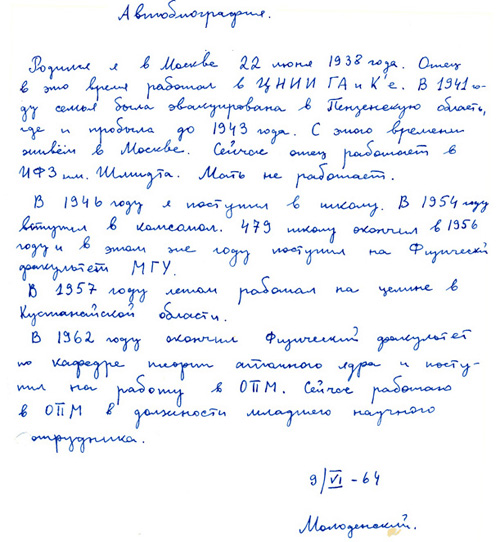 Автобиография.
Родился я в Москве 22 июня 1938 года. Отец
в это время работал в ЦНИИ ГА и К'е. В 1941 го-
ду семья была эвакуирована в Пензенскую область,
где и пробыла до 1943 года. С этого времени
живём в Москве. Сейчас отец работает в
ИФЗ им. Шмидта. Мать не работает.
В 1946 году я поступил в школу. В 1954 году
вступил в комсомол. 479 школу окончил в 1956
году и в этом же году поступил на Физический
факультет МГУ.
В 1957 году летом работал на целине в
Кустанайской области.
В 1962 году окончил Физический факультет
по кафедре теории атомного ядра и посту-
пил на работу в ОПМ. Сейчас работаю
в ОПМ в должности младшего научного
сотрудника.
9/VI - 64
Молоденский.